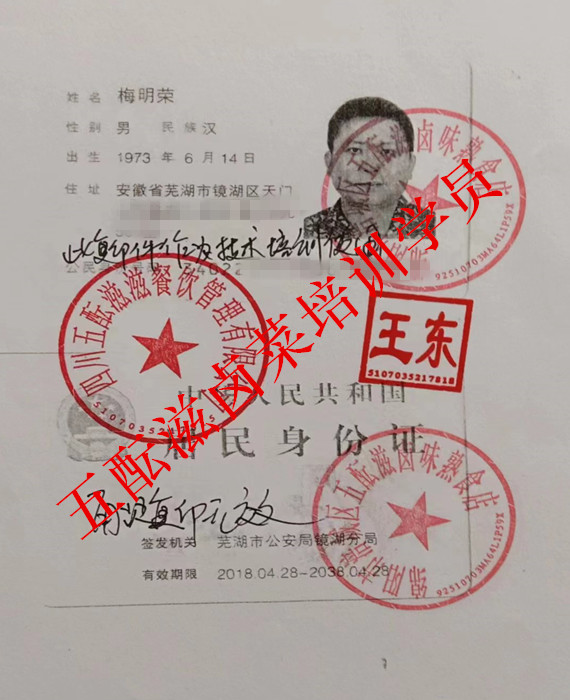 姓名 梅明荣
性别 男 民族 汉
出生 1973 年 6 月 14 日
住址 安徽省芜湖市镜湖区天门
此复印件作为技术培训使用
公民
34022
四川五酝滋滋餐饮管理有限
5107035217815
王东
5107035217818
五酝滋卤菜培训学员
五酝滋卤味熟食店
92510703MA64L1P59X
中华人民共和国
居民身份证
再次复印无效
签发机关 芜湖市公安局镜湖分局
有效期限 2018.04.28-2038.04.28
绵阳市涪城区五酝滋卤味熟食店
92510703MA64L1P59X